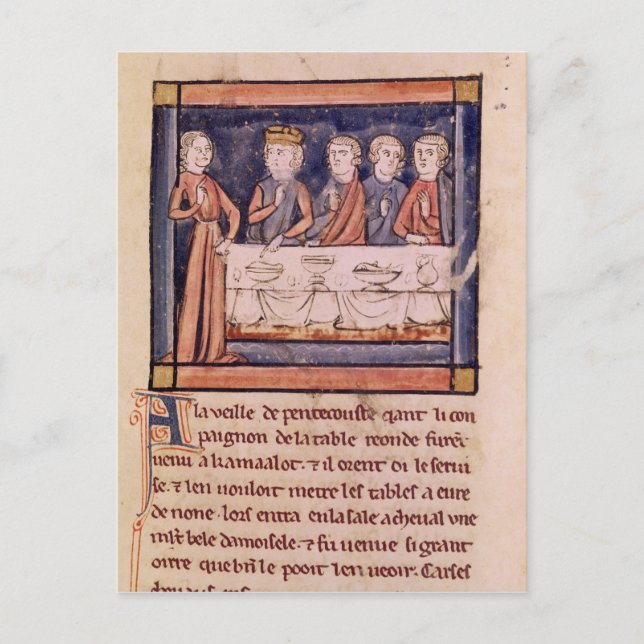 A la veille de pentecouste qant li con
paignon de la table reonde furēt
uenu a kamaalot. ⁊ il orent oi le serui
se. ⁊ len uouloit metre les tables a eure
de none. lors entra en la sale a cheual vne
ml't bele damoisele. ⁊ fu uenue si grant
oirre que bn̄ le pooit len ueoir. Car ses